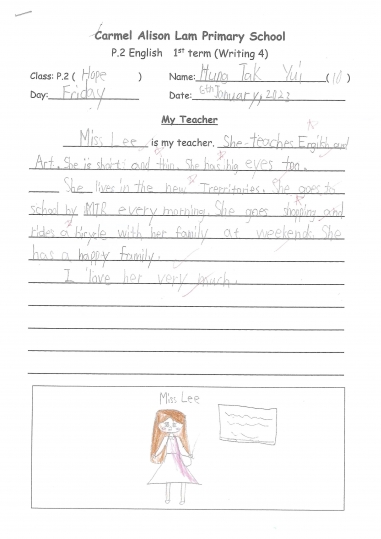 Carmel Alison Lam Primary School
P.2 English 1st term (Writing 4)
Class: P.2 ( Hope ) Name: Hung Tak Yui (10)
Day: Friday Date: 6th January, 2023
My Teacher
Miss Lee is my teacher. She teaches English and
Art. She is short and thin. She has big eyes too.
She lives in the new Trerritories. She goes to
school by MTR every morning. She goes shopping and
rides a bicycle with her family at weekends. She
has a happy family.
I love her very much.
Miss Lee